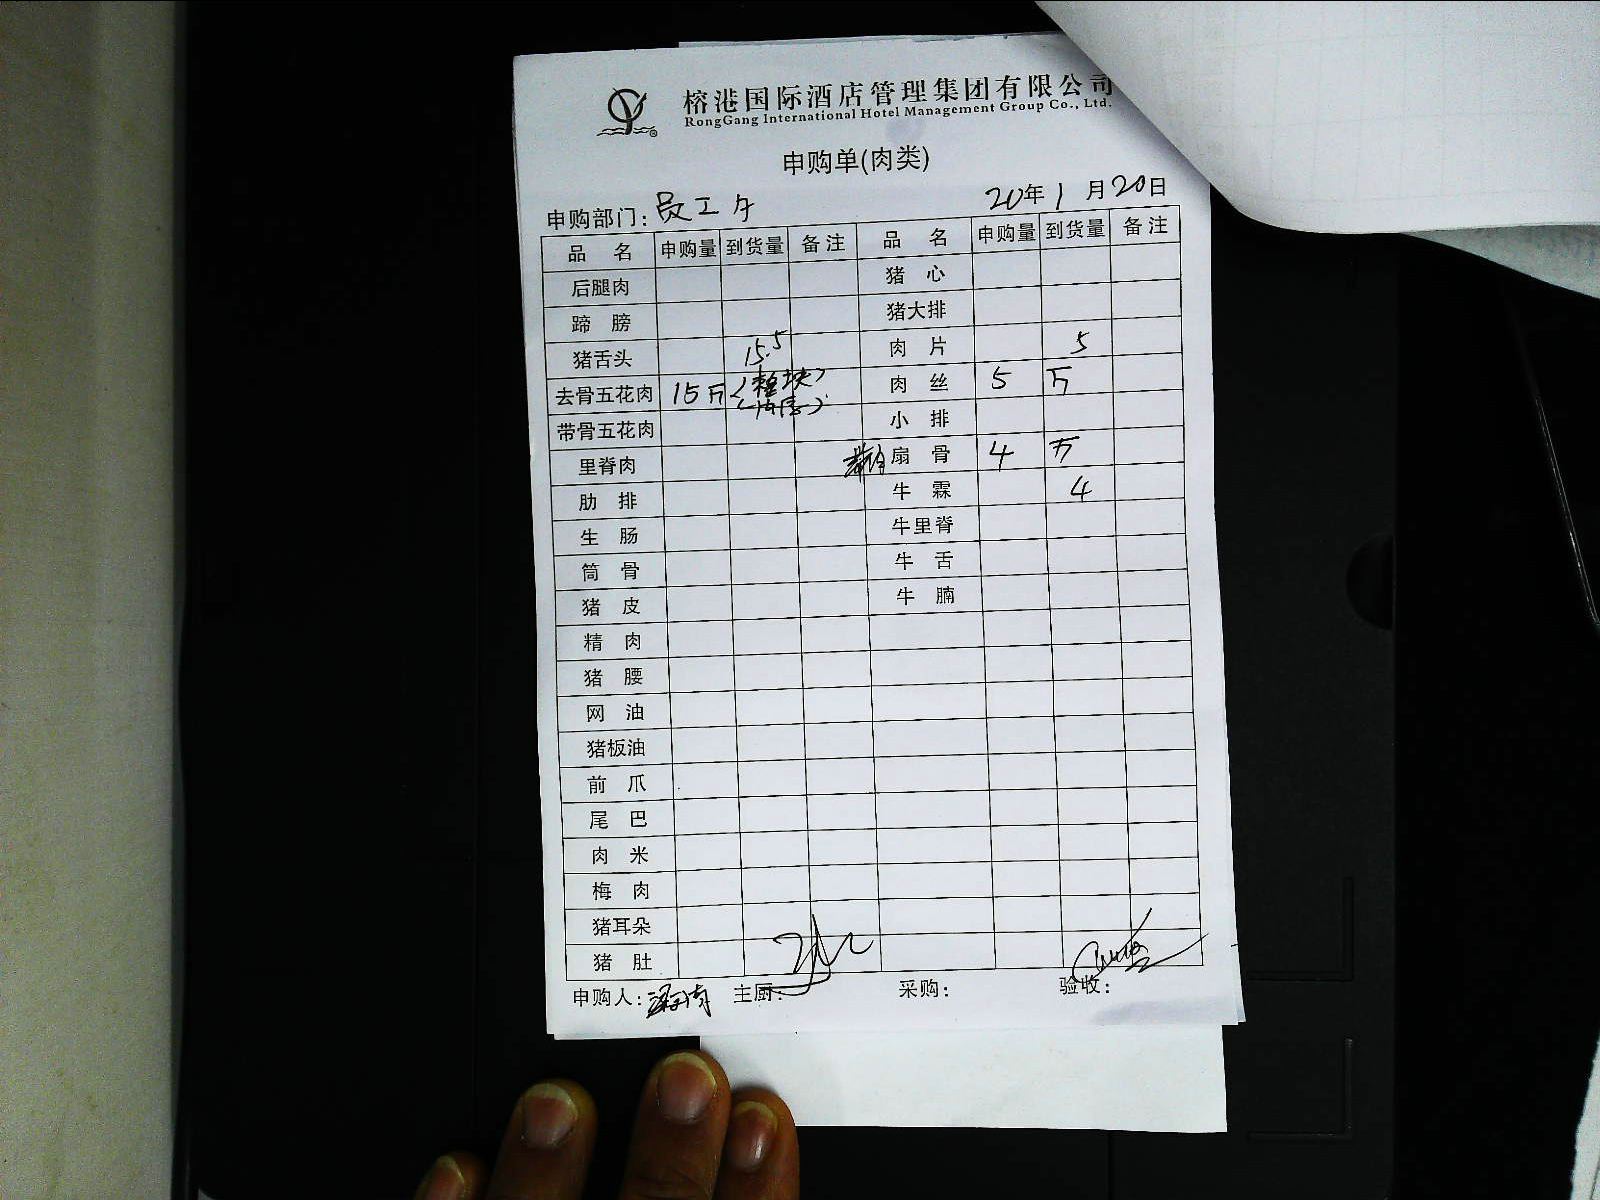 榕港国际酒店管理集团有限公司
RongGang International Hotel Management Group Co., Ltd.
申购单(肉类)
申购部门: 员工 20年1月20日
品 名 申购量 到货量 备注 品 名 申购量 到货量 备注
后腿肉 猪 心
蹄 膀 猪大排
猪舌头 15.5 肉 片 5
去骨五花肉 15斤 (整块) 肉 丝 5 斤
带骨五花肉 小 排
里脊肉 扇 骨 4 斤
肋 排 牛 霖 4
生 肠 牛里脊
筒 骨 牛 舌
猪 皮 牛 腩
精 肉
猪 腰
网 油
猪板油
前 爪
尾 巴
肉 米
梅 肉
猪耳朵
猪 肚
申购人: 主厨: 采购: 验收: